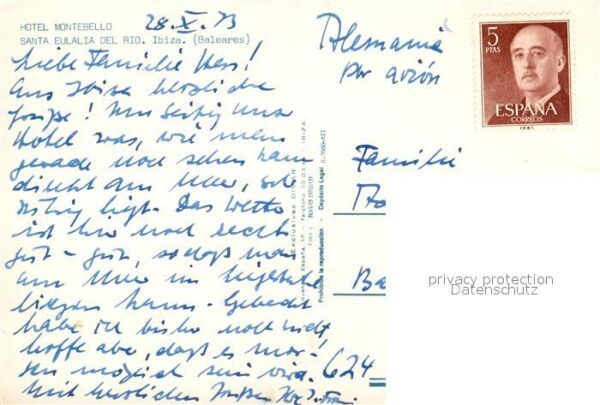 HOTEL MONTEBELLO
SANTA EULALIA DEL RIO. Ibiza. (Baleares)
28.X.73
Liebe Familie Hess!
Aus Ibiza herzliche
Grüße! Im
Hotel was, wie man
gerade noch sehen kann
direkt am Meer, sehr
ruhig liegt. Das Wetter
ist hier noch recht
gut - gut, sodaß man
am Meer im
liegen kann. - Gebadet
habe ich bisher noch nicht,
hoffe aber, daß es mor-
gen möglich sein wird.
Mit herzlichen Grüßen
Alemania
por avión
5
PTAS
ESPAÑA
CORREOS
Familie
Ba
624
Prohibida la reproducción. - Depósito Legal B.
privacy protection
Datenschutz